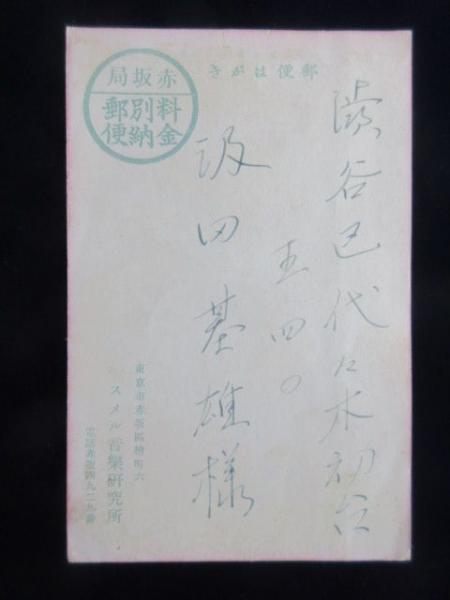 郵便はがき
澁谷区代々木初台
五四〇
汲田基雄様
赤坂局
料金
別納
郵便
東京市赤坂區檜町六
スメル音樂研究所
電話赤坂四九二九番